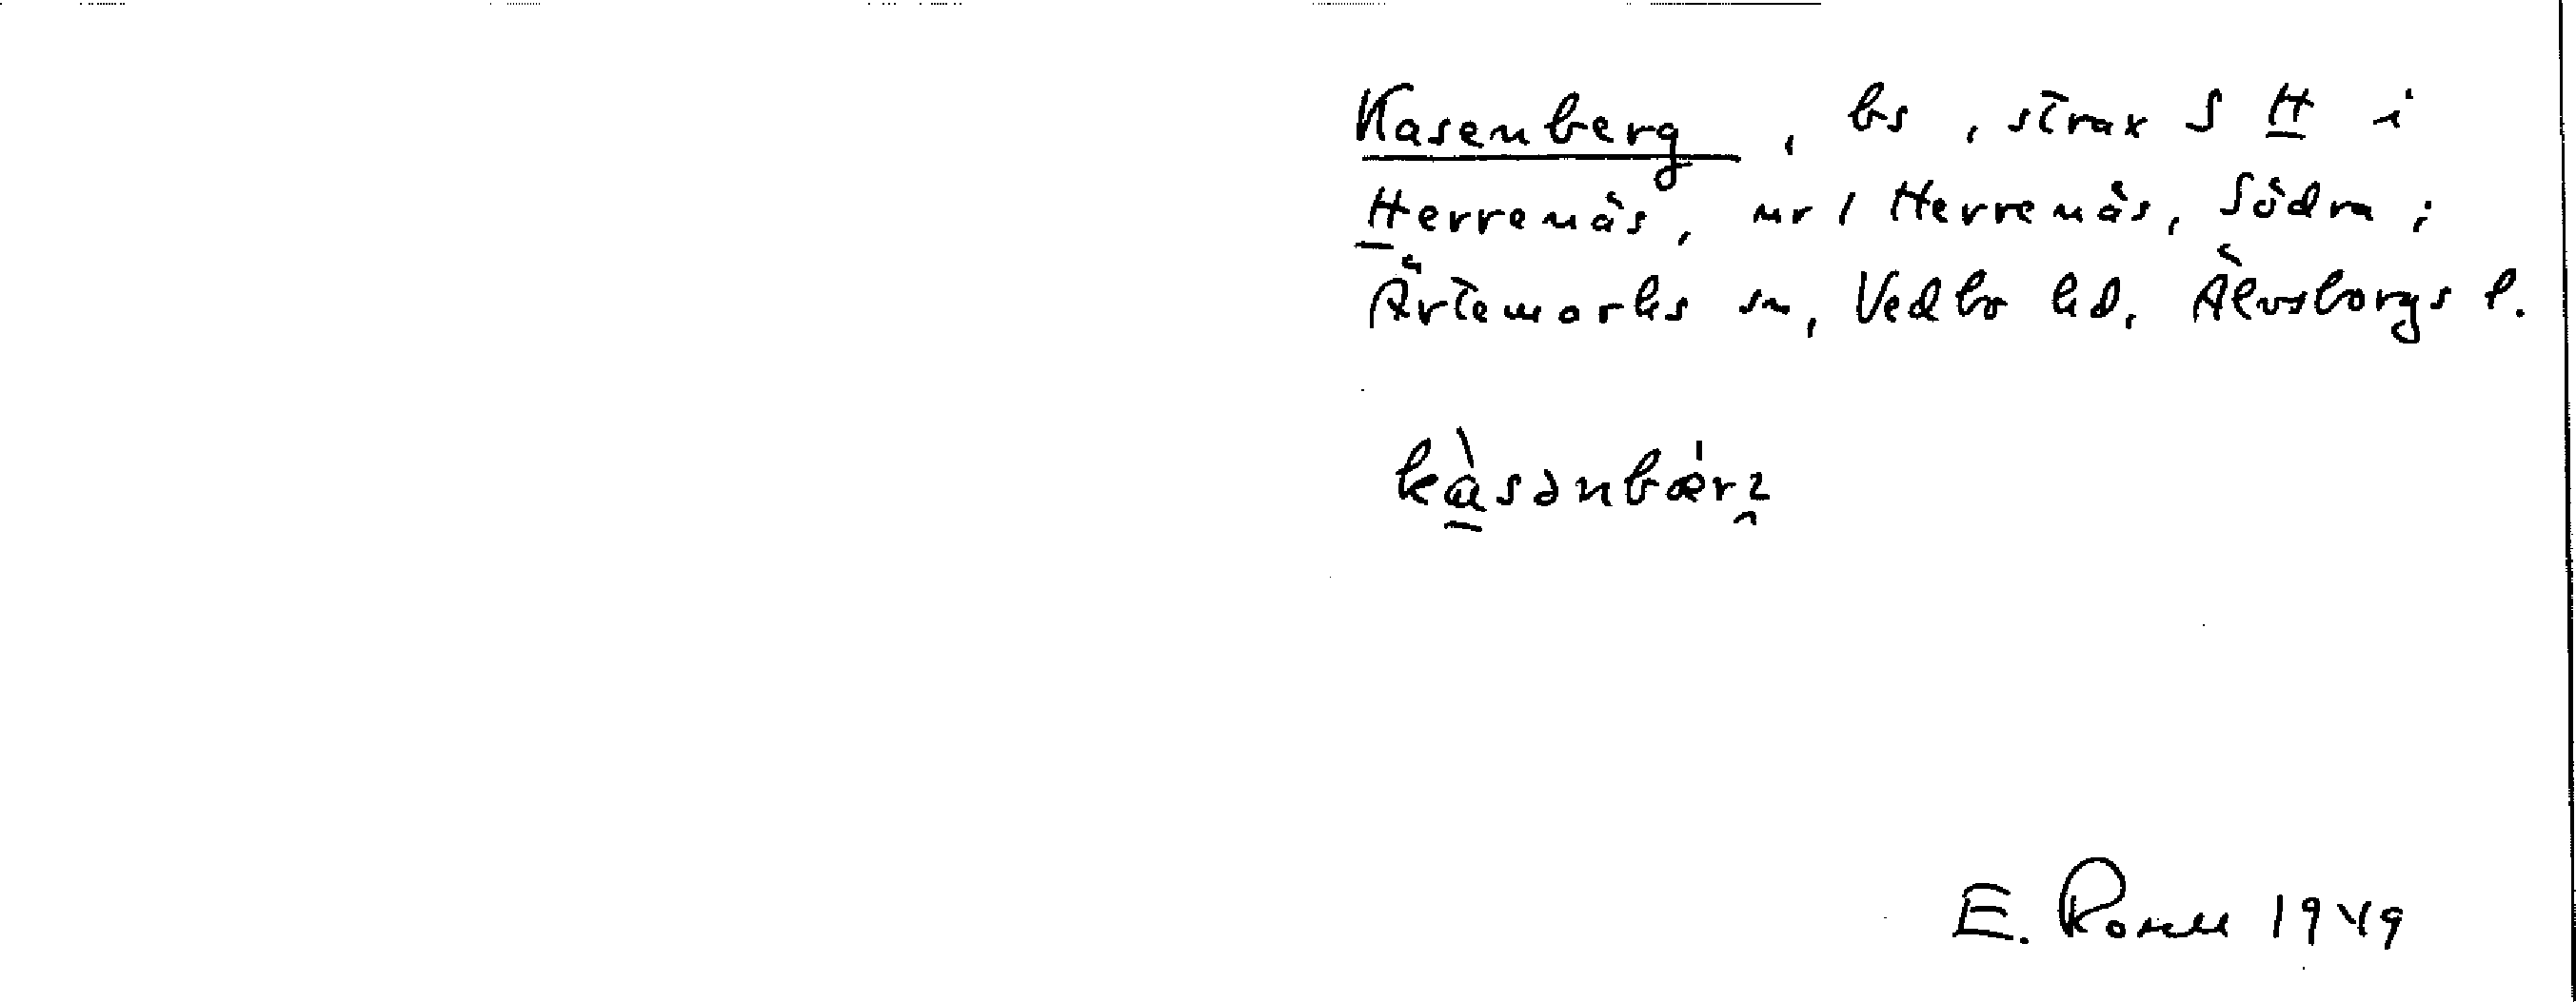 Kasenberg, bs, strax S H i
Herrenäs, nr 1 Herrenäs, Södra;
Ärtemarks sn, Vedbo hd, Älvsborgs l.
E. 1949